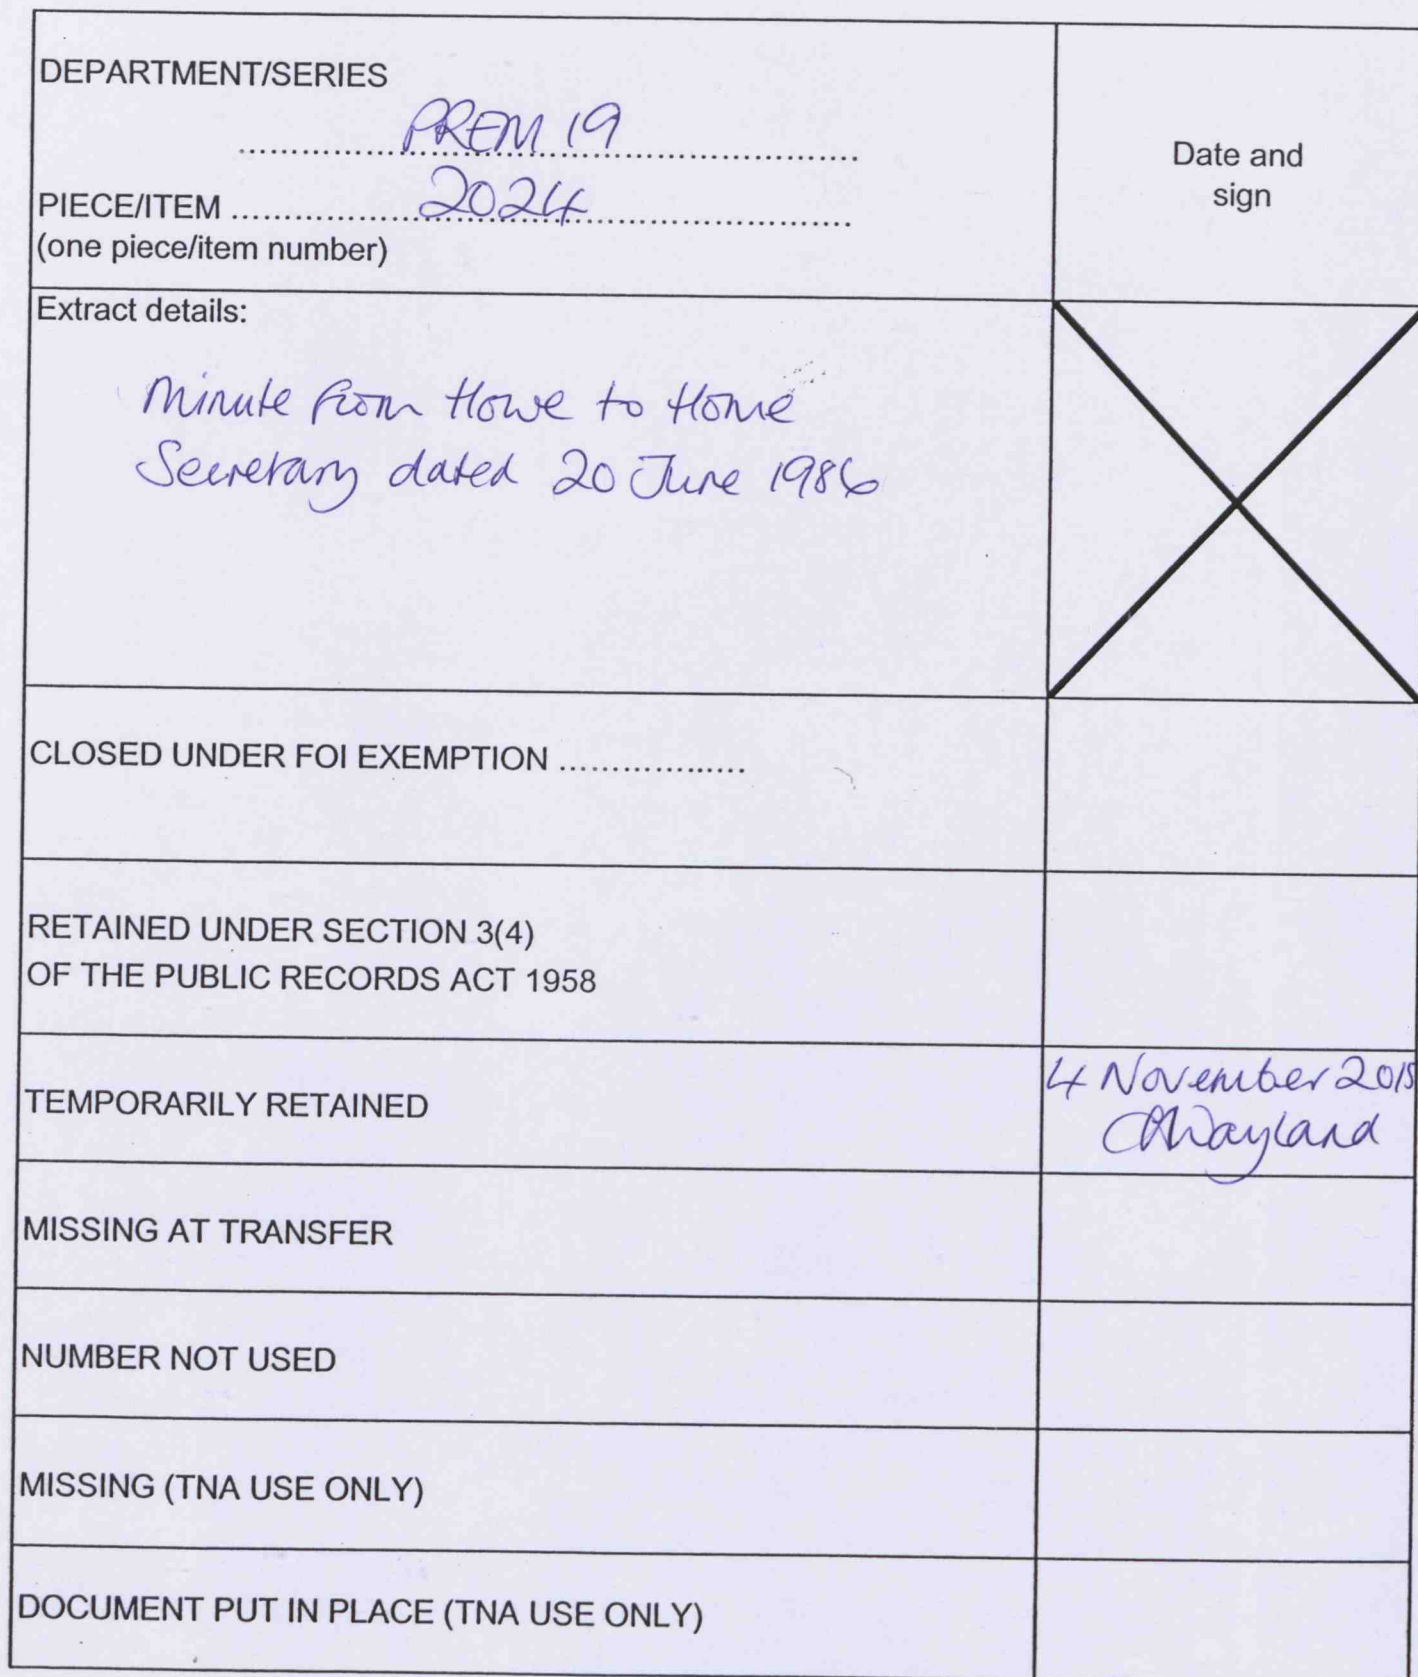 DEPARTMENT/SERIES
PREM 19
Date and
sign
PIECE/ITEM 2024
(one piece/item number)
Extract details:
Minute from Howe to Home
Secretary dated 20 June 1986
CLOSED UNDER FOI EXEMPTION
RETAINED UNDER SECTION 3(4)
OF THE PUBLIC RECORDS ACT 1958
TEMPORARILY RETAINED
4 November 2015
Wayland
MISSING AT TRANSFER
NUMBER NOT USED
MISSING (TNA USE ONLY)
DOCUMENT PUT IN PLACE (TNA USE ONLY)